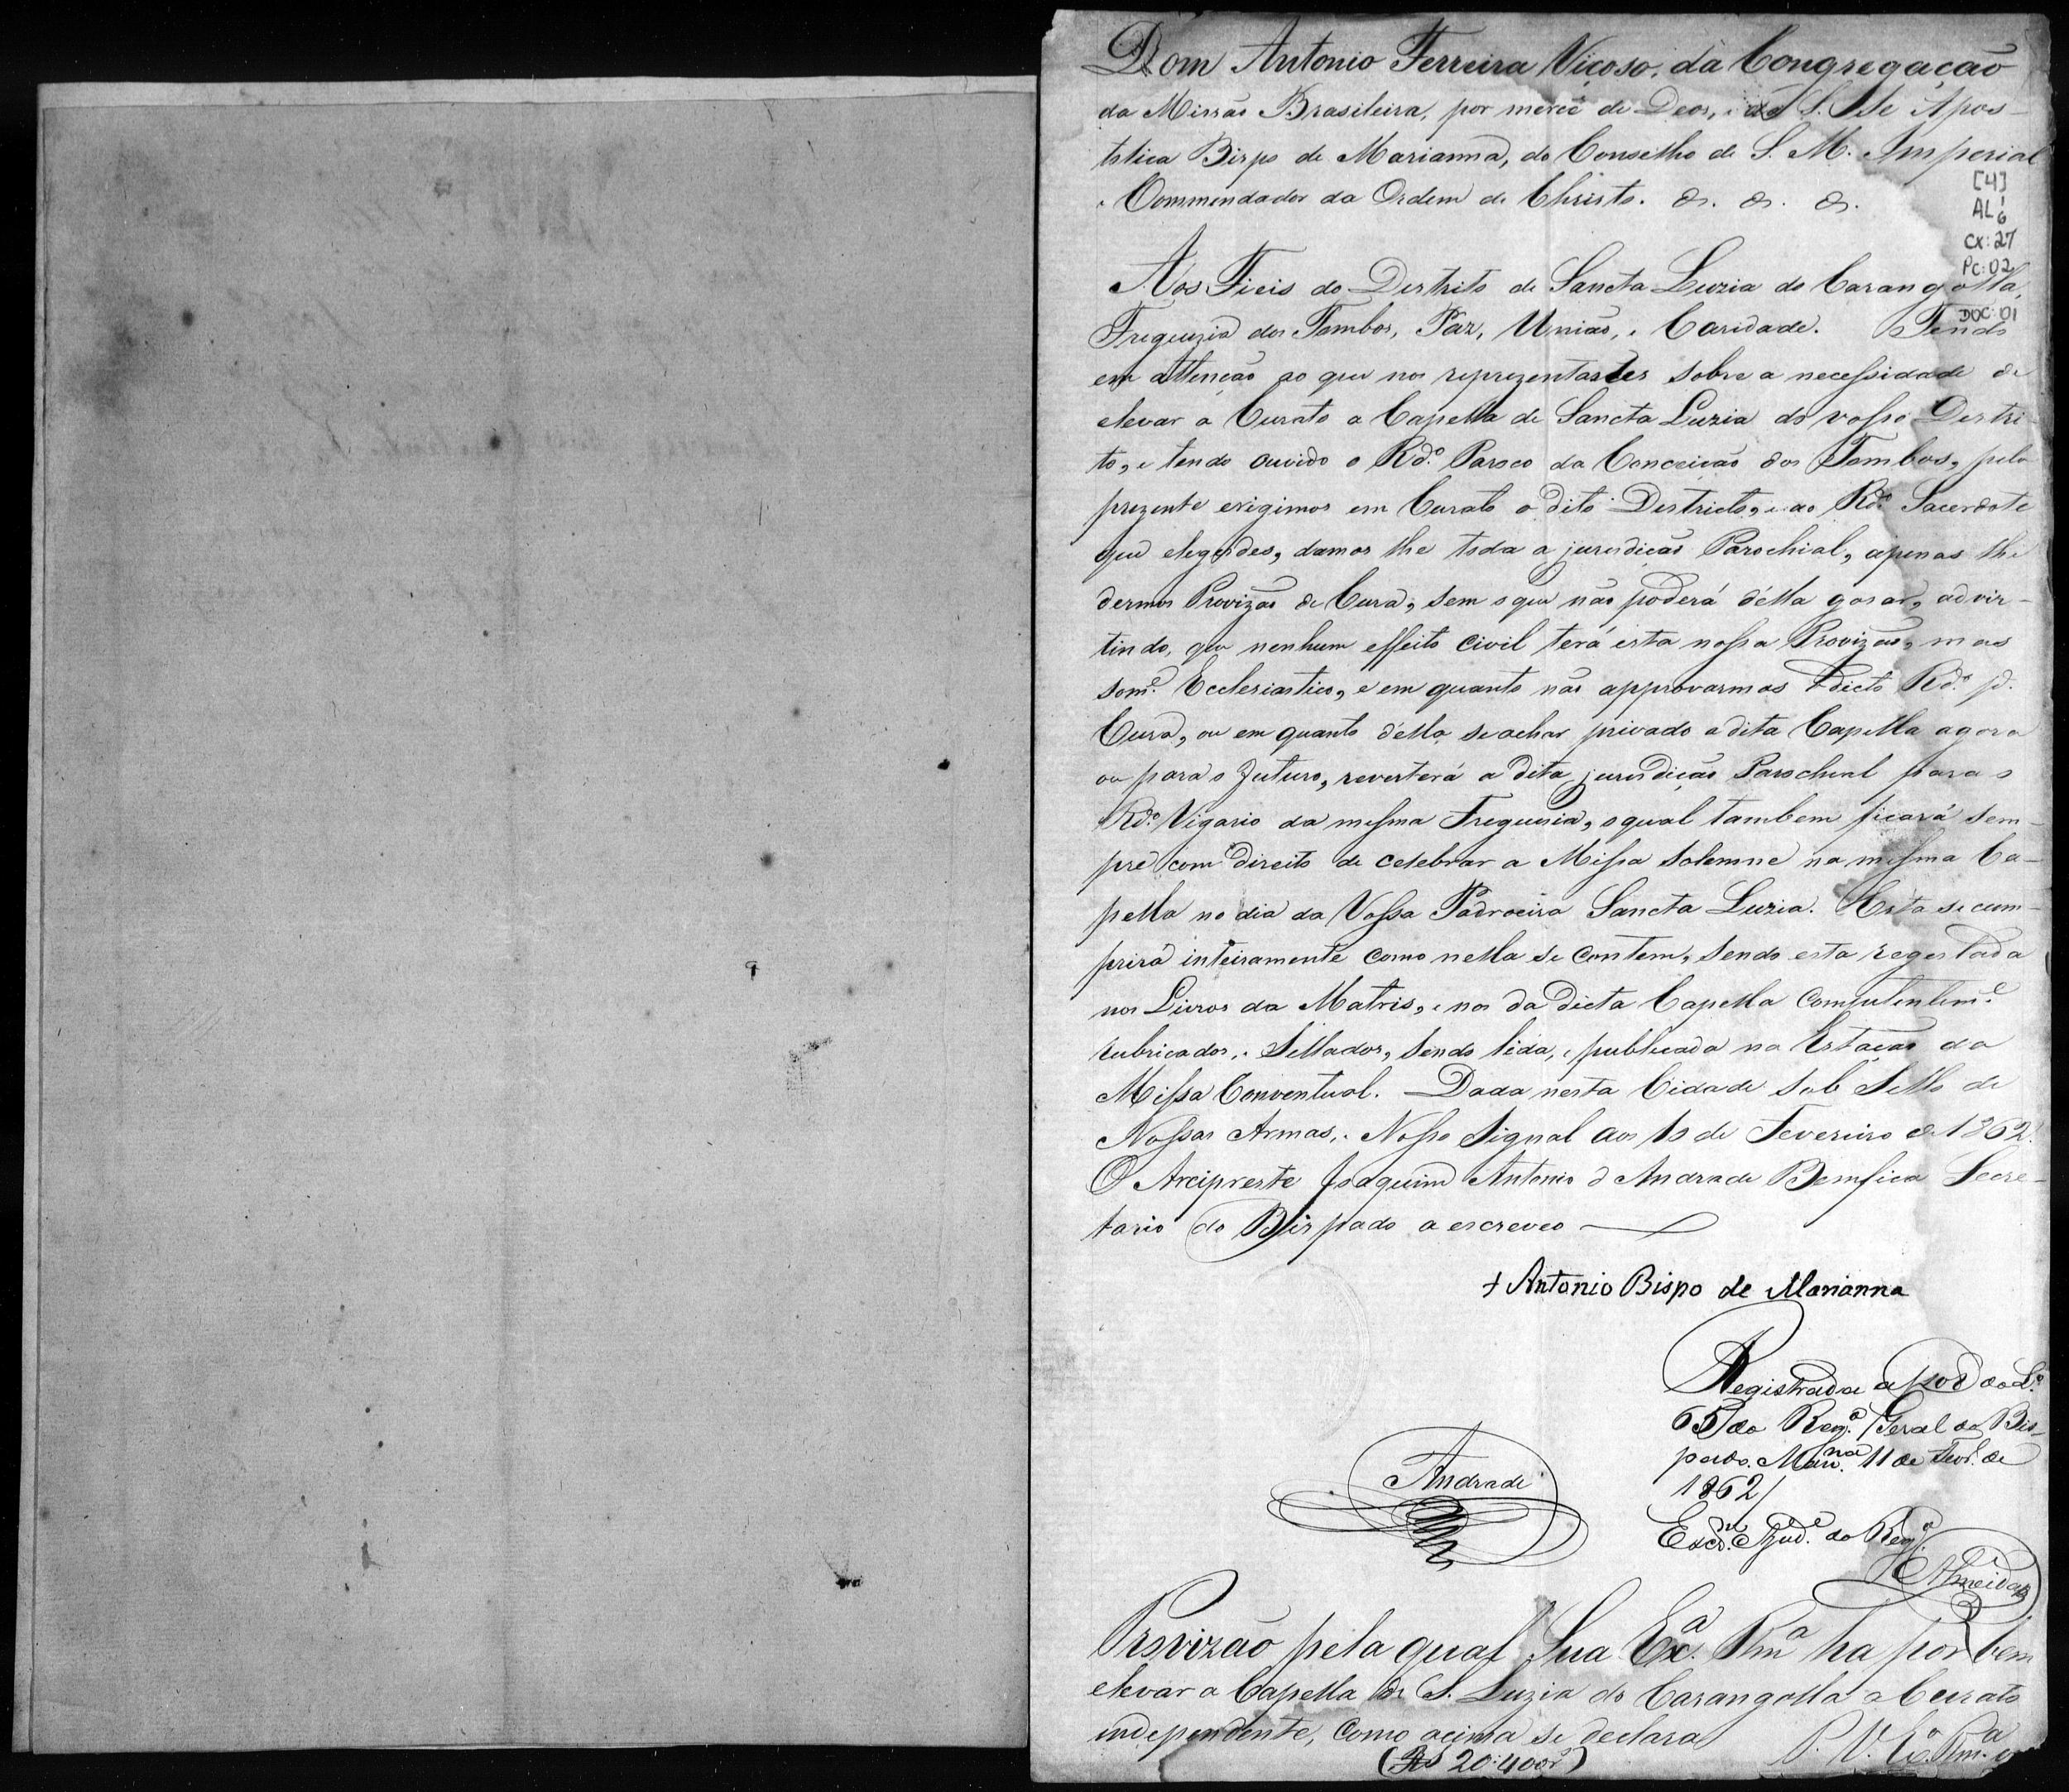 Dom Antonio Ferreira Viçoso, da Congregação
da Missão Brasileira, por mercê de Deos, e da S. Sé Apos-
tolica Bispo de Marianna, do Conselho de S. M. Imperial
e Commendador da Ordem de Christo. &. &. &.
[4]
AL 6
CX: 27
PC: 02
DOC: 01
Aos Fieis do Destrito de Sancta Luzia do Carangolla,
Freguezia dos Tombos, Paz, União, e Caridade. Tendo
em attenção ao que nos reprezentastes sobre a necessidade de
elevar a Curato a Capella de Sancta Luzia do vosso Destri-
to, e tendo ouvido o Rdo. Paroco da Conceicão dos Tombos, pela
prezente erigimos em Curato o dito Destricto, e ao Rdo. Sacerdote
que elegerdes, damos lhe toda a jurisdicão Parochial, apenas lhe
dermos Provizão de Cura, sem o que não poderá d'ella gosar, advir-
tindo, que nenhum effeito civil terá esta nossa Provizão, mas
some. Ecclesiastico, e em quanto não approvarmos o dicto Rdo. pa.
Cura, ou em quanto d'ello se achar privado a dita Capella agora
ou para o futuro, reverterá a dita jurisdição Parochial para o
Rdo. Vigario da mesma Freguesia, o qual tambem ficará sem-
pre com direito de celebrar a Missa solemne na mesma Ca-
pella no dia da Vossa Padroeira Sancta Luzia. Esta se cum-
prirá inteiramente como nella se contem, sendo esta registada
nos Livros da Matris, e nos da dicta Capella competenteme.
rubricados, e Sellados, sendo lida, e publicada na Estação da
Missa Conventual. Dada nesta Cidade sob Sello de
Nossas Armas, e Nosso Signal aos 10 de Fevereiro de 1862.
O Arcipreste Joaquim Antonio d'Andrade Bemfica Secre-
tario do Bispado a escreveo
+ Antonio Bispo de Marianna
Registrada a do Lo.
65 do Rego. Geral do Bis-
pado. Marna. 11 de Fevro. de
1862
Escrm. Ajude. do Rego.
Almeida
Andrade
Provizão pela qual Sua Exa. Rma ha por bem
elevar a Capella de S. Luzia do Carangolla a Curato
independente, como acima se declara
P. V. Exa. Rma.
(Rs 20:400r)